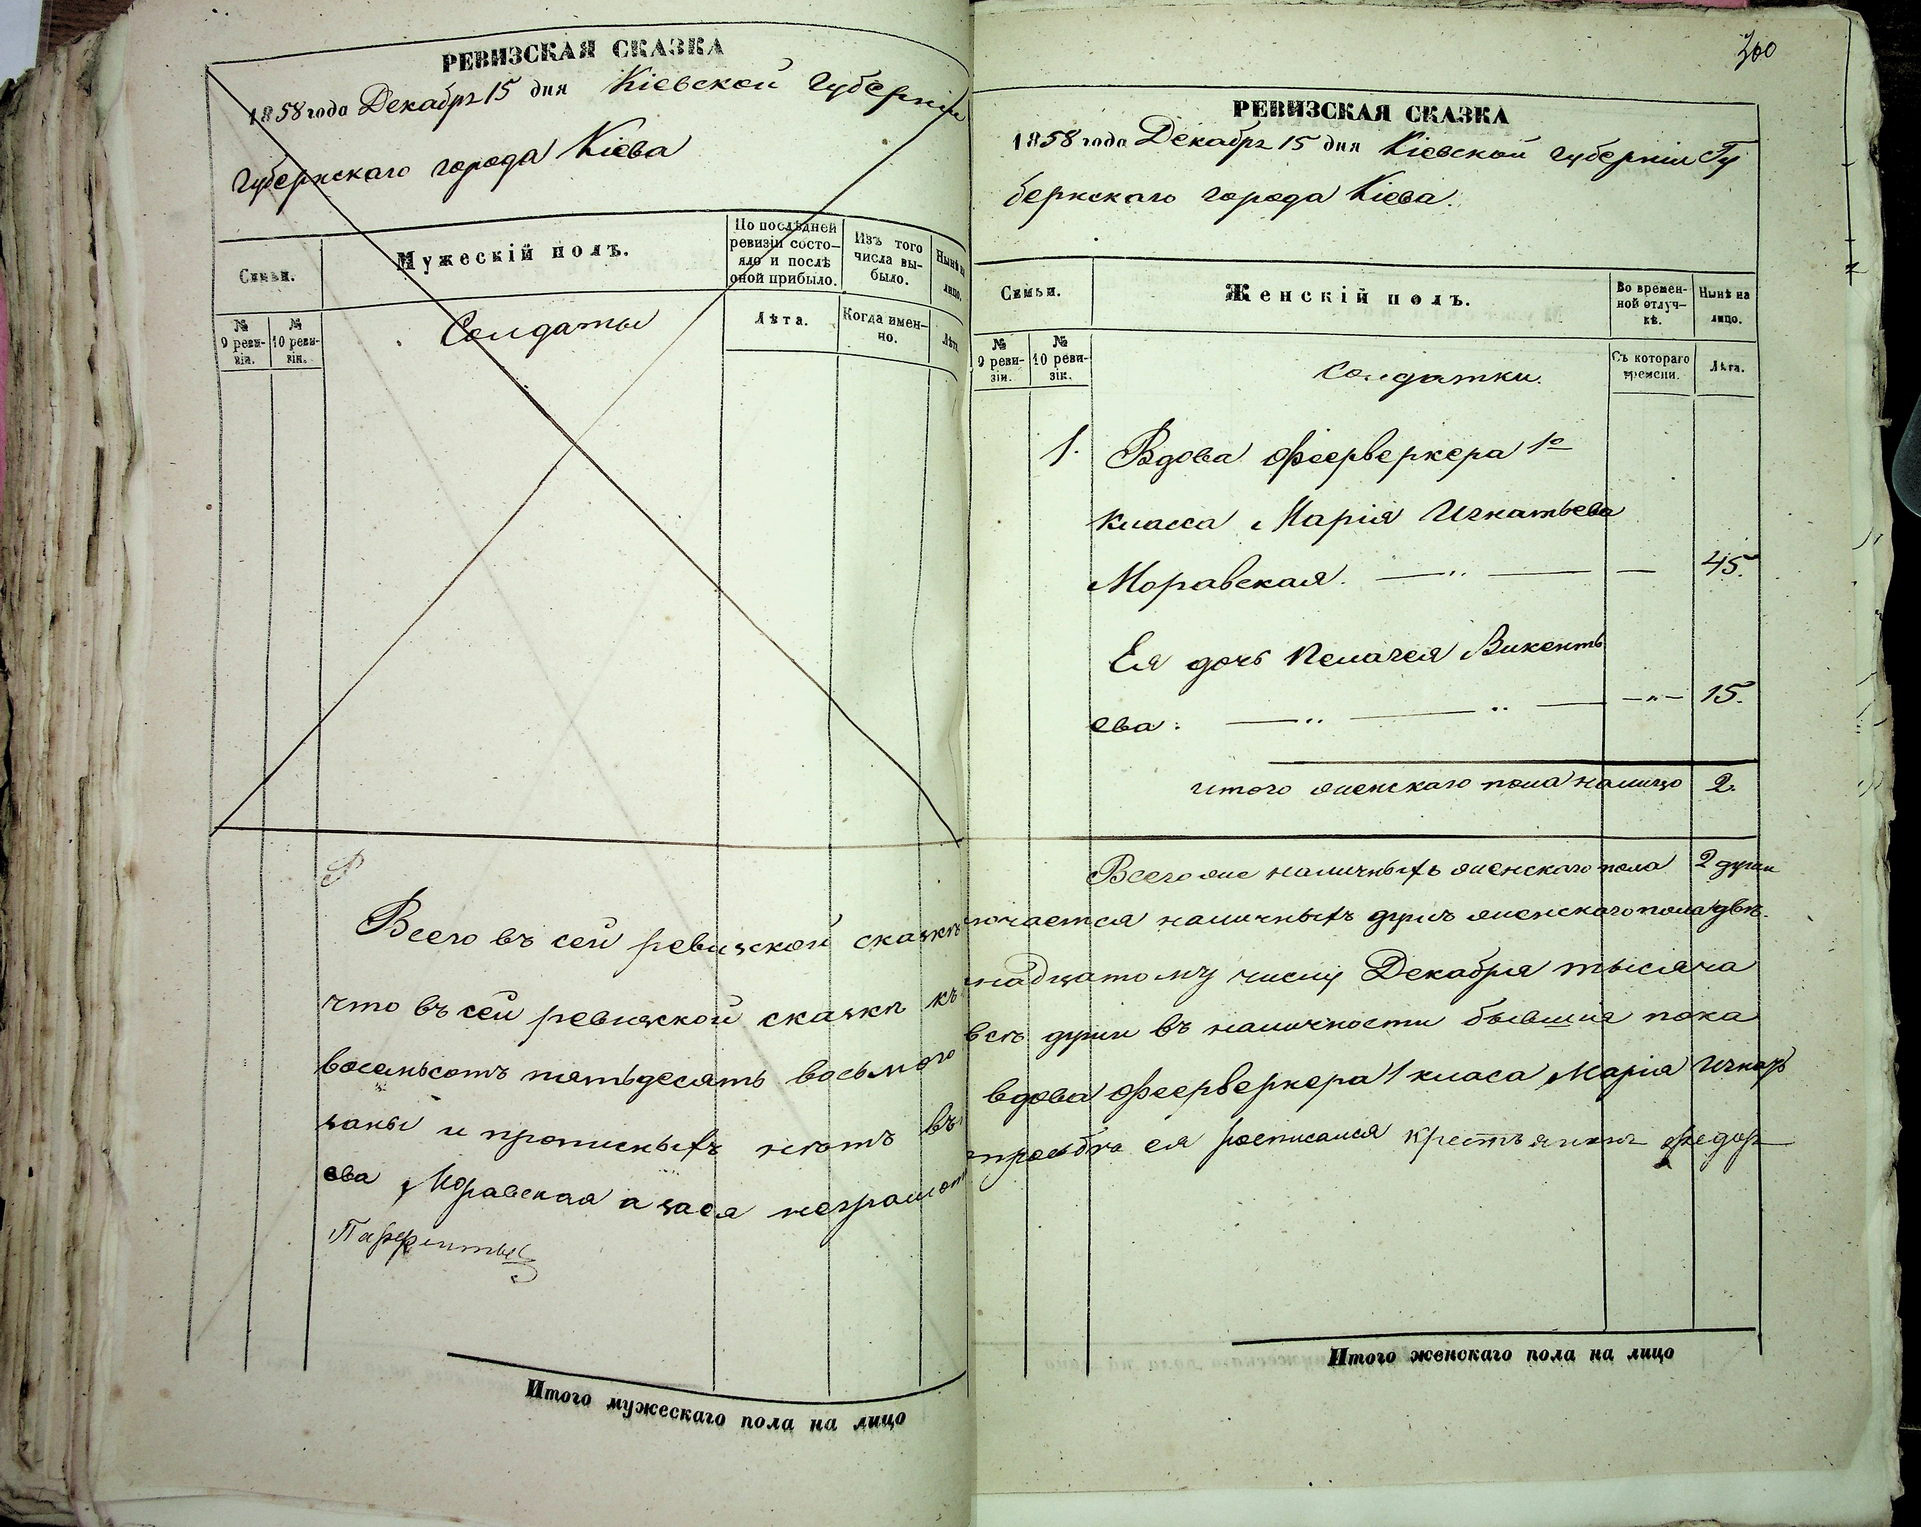 РЕВИЗСКАЯ СКАЗКА
1858 года Декабря 15 дня Кіевской Губерніи
Губернскаго города Кіева
Семьи.
Мужескій полъ.
По послѣдней ревизіи состояло и послѣ оной прибыло.
Изъ того числа выбыло.
Нынѣ на лицо.
№ 9 ревизіи.
№ 10 ревизіи.
Солдаты
Лѣта.
Когда именно.
Лѣта.
Всего въ сей ревизской сказкѣ
что въ сей ревизской сказки къ
восемьсотъ пятьдесять восьмого
заны и прописныхъ нѣтъ въ
ева Моравская а за ея неграмот
Парфентьев
Итого мужескаго пола на лицо
300
РЕВИЗСКАЯ СКАЗКА
1858 года Декабря 15 дня Кіевской губерніи Гу
бернскаго города Кіева.
Семьи.
Женскій полъ.
Во временной отлучкѣ.
Нынѣ на лицо.
№ 9 ревизіи.
№ 10 ревизіи.
Солдатки.
Съ котораго времени.
Лѣта.
1. Вдова феерверкера 1го
класса Марія Игнатьева
Моравская. — " — — 45.
Ея дочь Пелагея Викенть
ева. — " — " — — " — 15.
итого женскаго пола налицо 2.
Всего же наличныхъ женскаго пола 2 души
лючается наличныхъ душъ женскаго пола двѣ.
надцатому числу Декабря тысяча
всѣ души въ наличности бывшія пока
вдова феерверкера 1 класа Марія Игнать
просьбѣ ея росписался крестьянинъ Федоръ
Итого женскаго пола на лицо